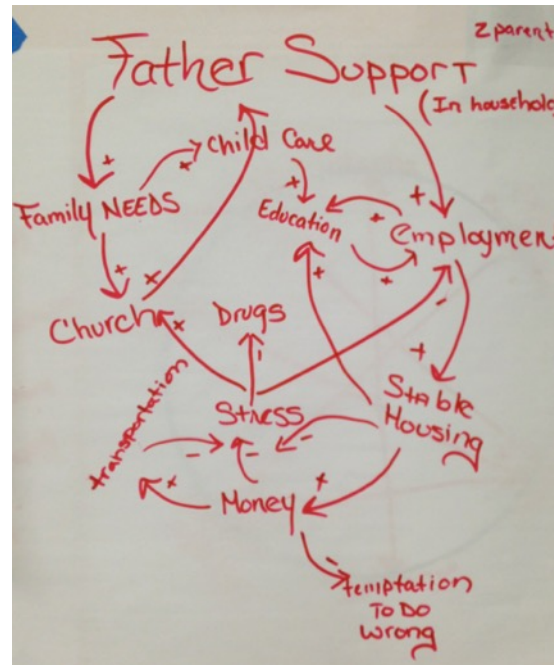 2 parent
Father Support
(In household
Child Care
Family NEEDS
Education
Employmen
Church
Drugs
Stable
Housing
Stress
transportation
Money
temptation
To Do
wrong